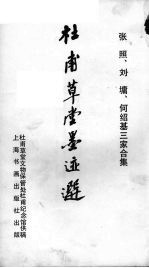 张照、刘墉、何绍基三家合集
杜甫草堂墨迹选
杜甫草堂文物保管处杜甫纪念馆供稿
上海书画出版社出版